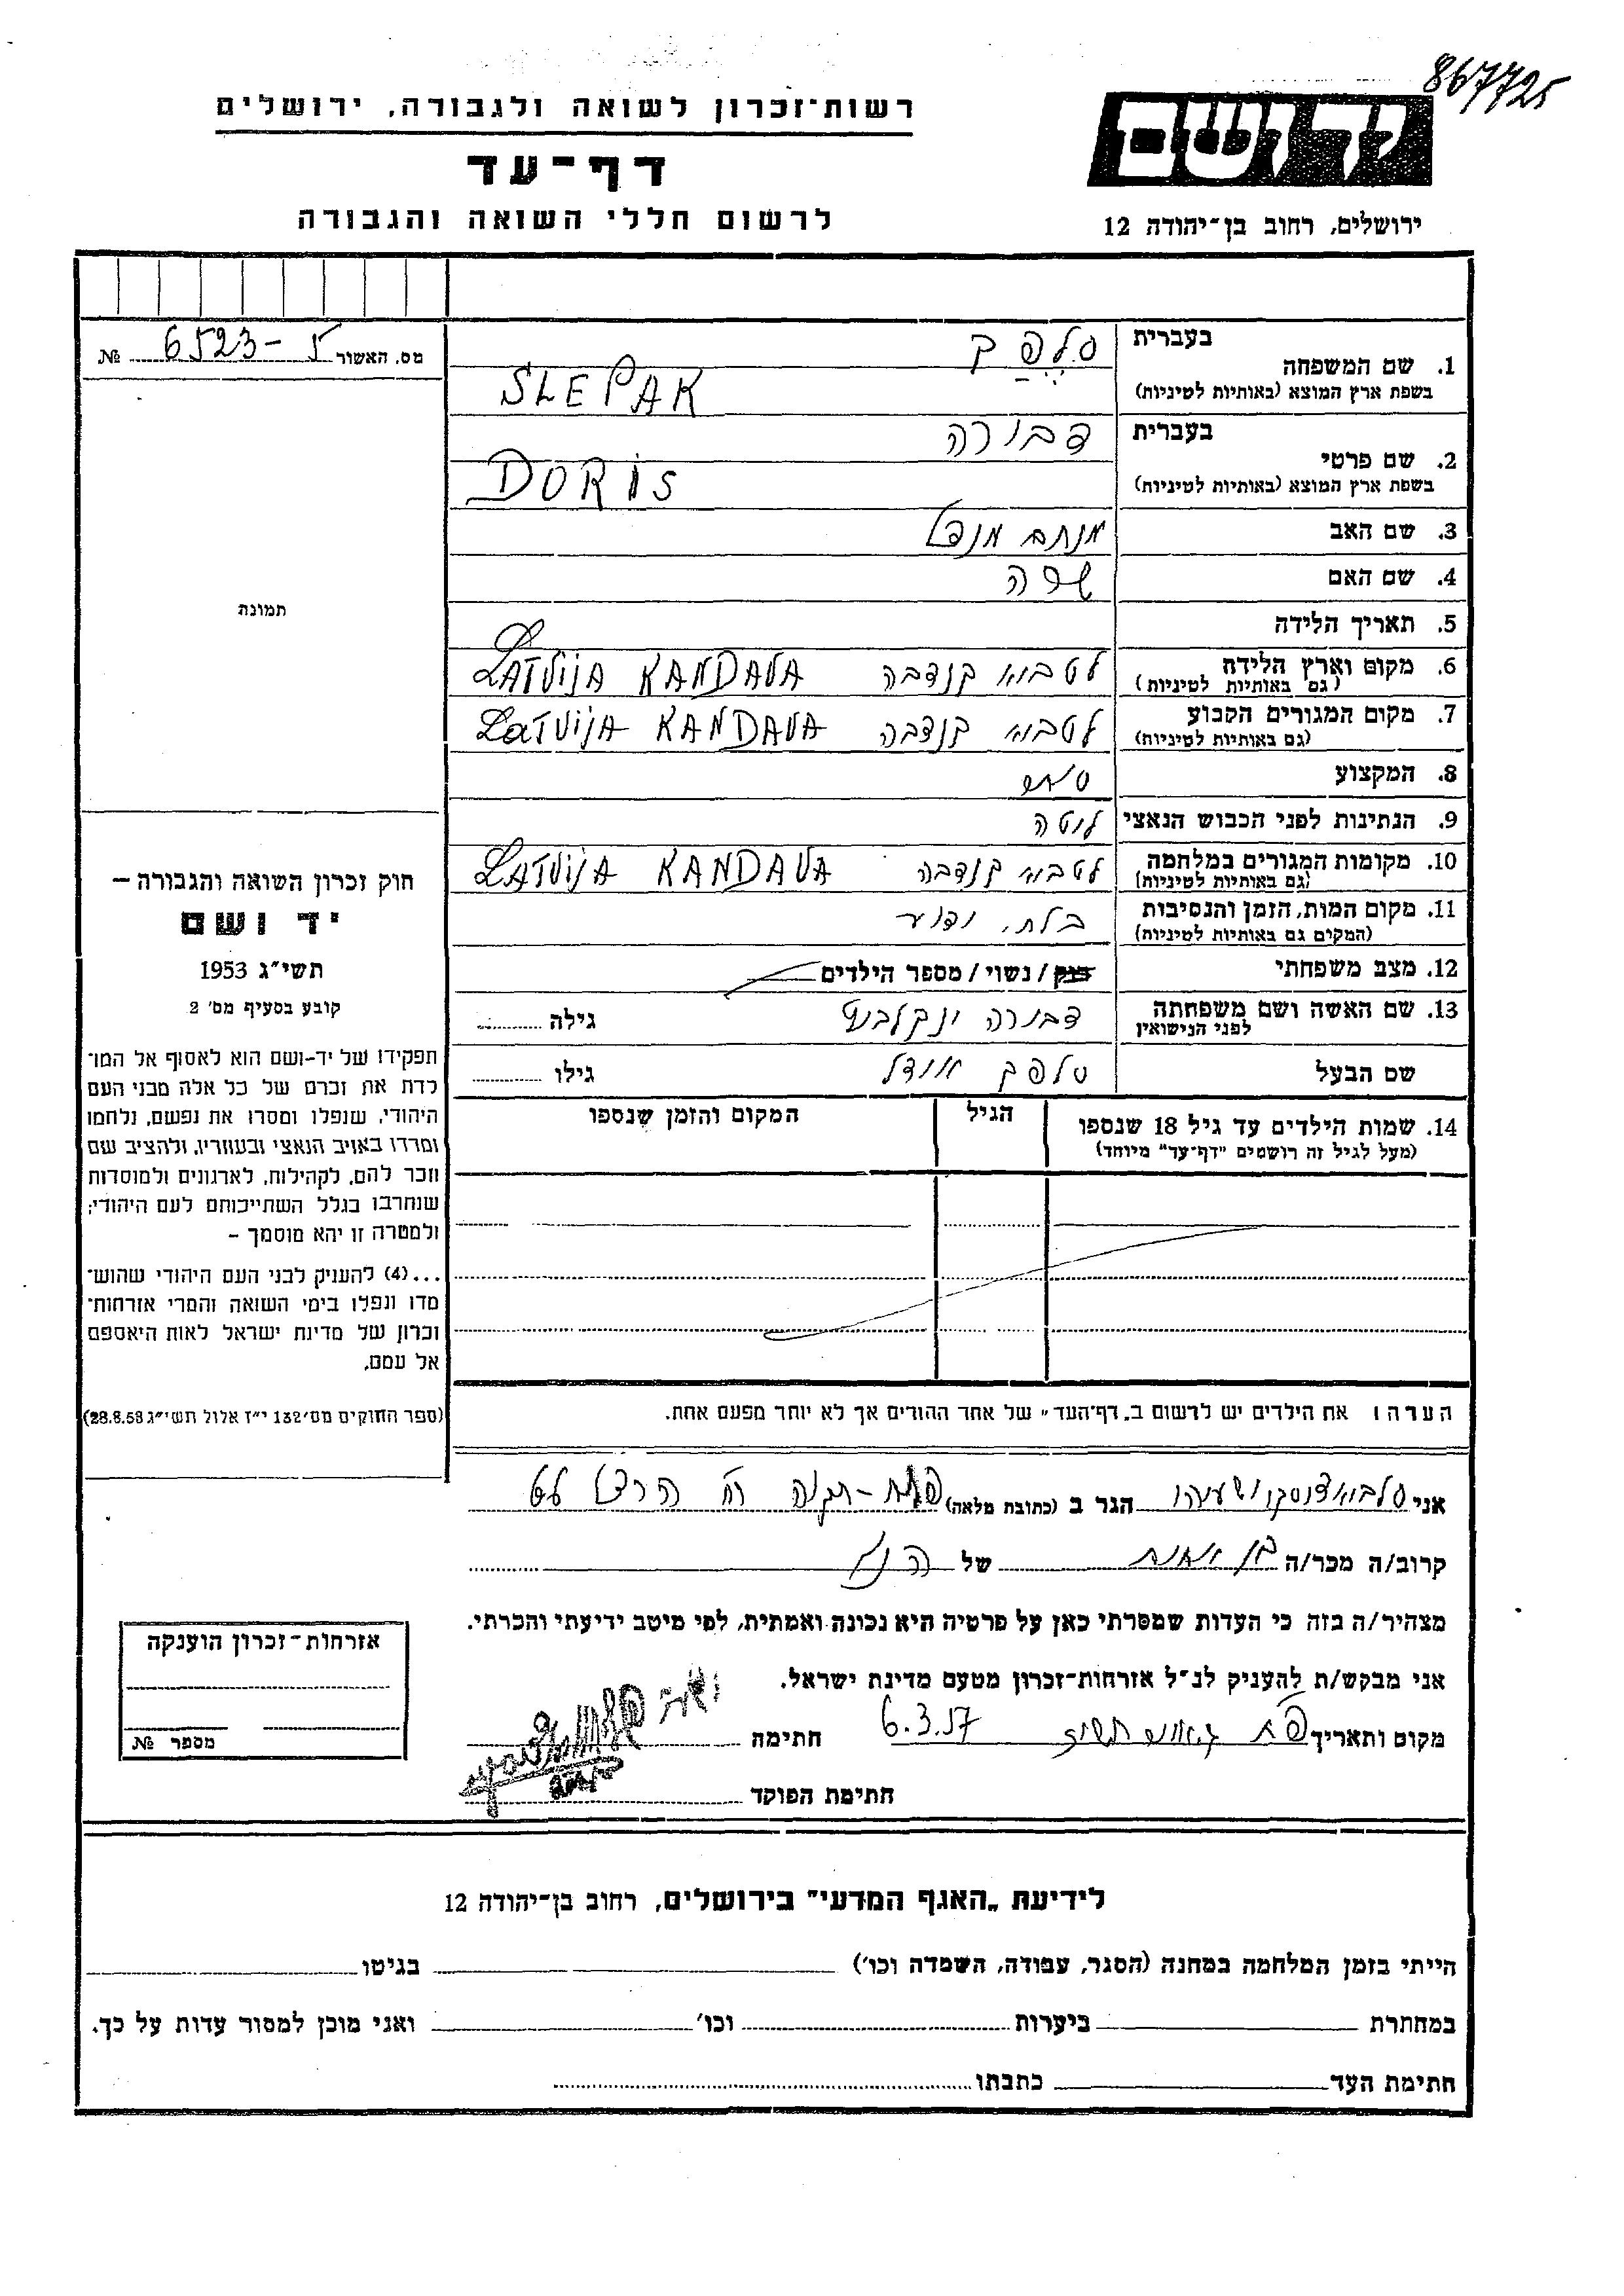 867725
רשות־זכרון לשואה ולגבורה, ירושלים
דף־עד
לרשום חללי השואה והגבורה
יד ושם
ירושלים, רחוב בן־יהודה 12
מס. האשור 6523-5 №
תמונה
חוק זכרון השואה והגבורה –
יד ושם
תשי״ג 1953
קובע בסעיף מס׳ 2
תפקידו של יד-ושם הוא לאסוף אל המו־
לדת את זכרם של כל אלה מבני העם
היהודי, שנפלו ומסרו את נפשם, נלחמו
ומרדו באויב הנאצי ובעוזריו, ולהציב שם
וזכר להם, לקהילות, לארגונים ולמוסדות
שנחרבו בגלל השתייכותם לעם היהודי;
ולמטרה זו יהא מוסמך –
...(4) להעניק לבני העם היהודי שהוש־
מדו ונפלו בימי השואה והמרי אזרחות־
זכרון של מדינת ישראל לאות היאספם
אל עמם.
(ספר החוקים מס׳ 132 י״ז אלול תשי״ג 28.8.53)
1. שם המשפחה
בעברית סלפק
בשפת ארץ המוצא (באותיות לטיניות) SLEPAK
2. שם פרטי
בעברית דבורה
בשפת ארץ המוצא (באותיות לטיניות) DORIS
3. שם האב מנחם מנדל
4. שם האם שרה
5. תאריך הלידה
6. מקום וארץ הלידה (גם באותיות לטיניות) לטביא קנדבה LATVIJA KANDAVA
7. מקום המגורים הקבוע (גם באותיות לטיניות) לטביא קנדבה LATVIJA KANDAVA
8. המקצוע
9. הנתינות לפני הכבוש הנאצי לוטה
10. מקומות המגורים במלחמה (גם באותיות לטיניות) לטביא קנדבה LATVIJA KANDAVA
11. מקום המות, הזמן והנסיבות (המקום גם באותיות לטיניות) בלתי ידוע
12. מצב משפחתי רווק / נשוי / מספר הילדים
13. שם האשה ושם משפחתה לפני הנישואין דבורה גילה
שם הבעל סלפק גילו
14. שמות הילדים עד גיל 18 שנספו
(מעל לגיל זה רושמים "דף־עד" מיוחד)
הגיל
המקום והזמן שנספו
הערה: את הילדים יש לרשום ב„דף־העד״ של אחד ההורים אך לא יותר מפעם אחת.
אני הגר ב (כתובת מלאה) פתח-תקוה רח הרצל
קרוב/ה מכר/ה בן אחות של הנ״ל
מצהיר/ה בזה כי העדות שמסרתי כאן על פרטיה היא נכונה ואמתית, לפי מיטב ידיעתי והכרתי.
אני מבקש/ת להעניק לנ״ל אזרחות־זכרון מטעם מדינת ישראל.
מקום ותאריך 6.3.57 חתימה
חתימת הפוקד
אזרחות־זכרון הוענקה
מספר №
לידיעת „האגף המדעי״ בירושלים, רחוב בן־יהודה 12
הייתי בזמן המלחמה במחנה (הסגר, עבודה, השמדה וכו׳) בגיטו
במחתרת ביערות וכו׳ ואני מוכן למסור עדות על כך.
חתימת העד כתבתו